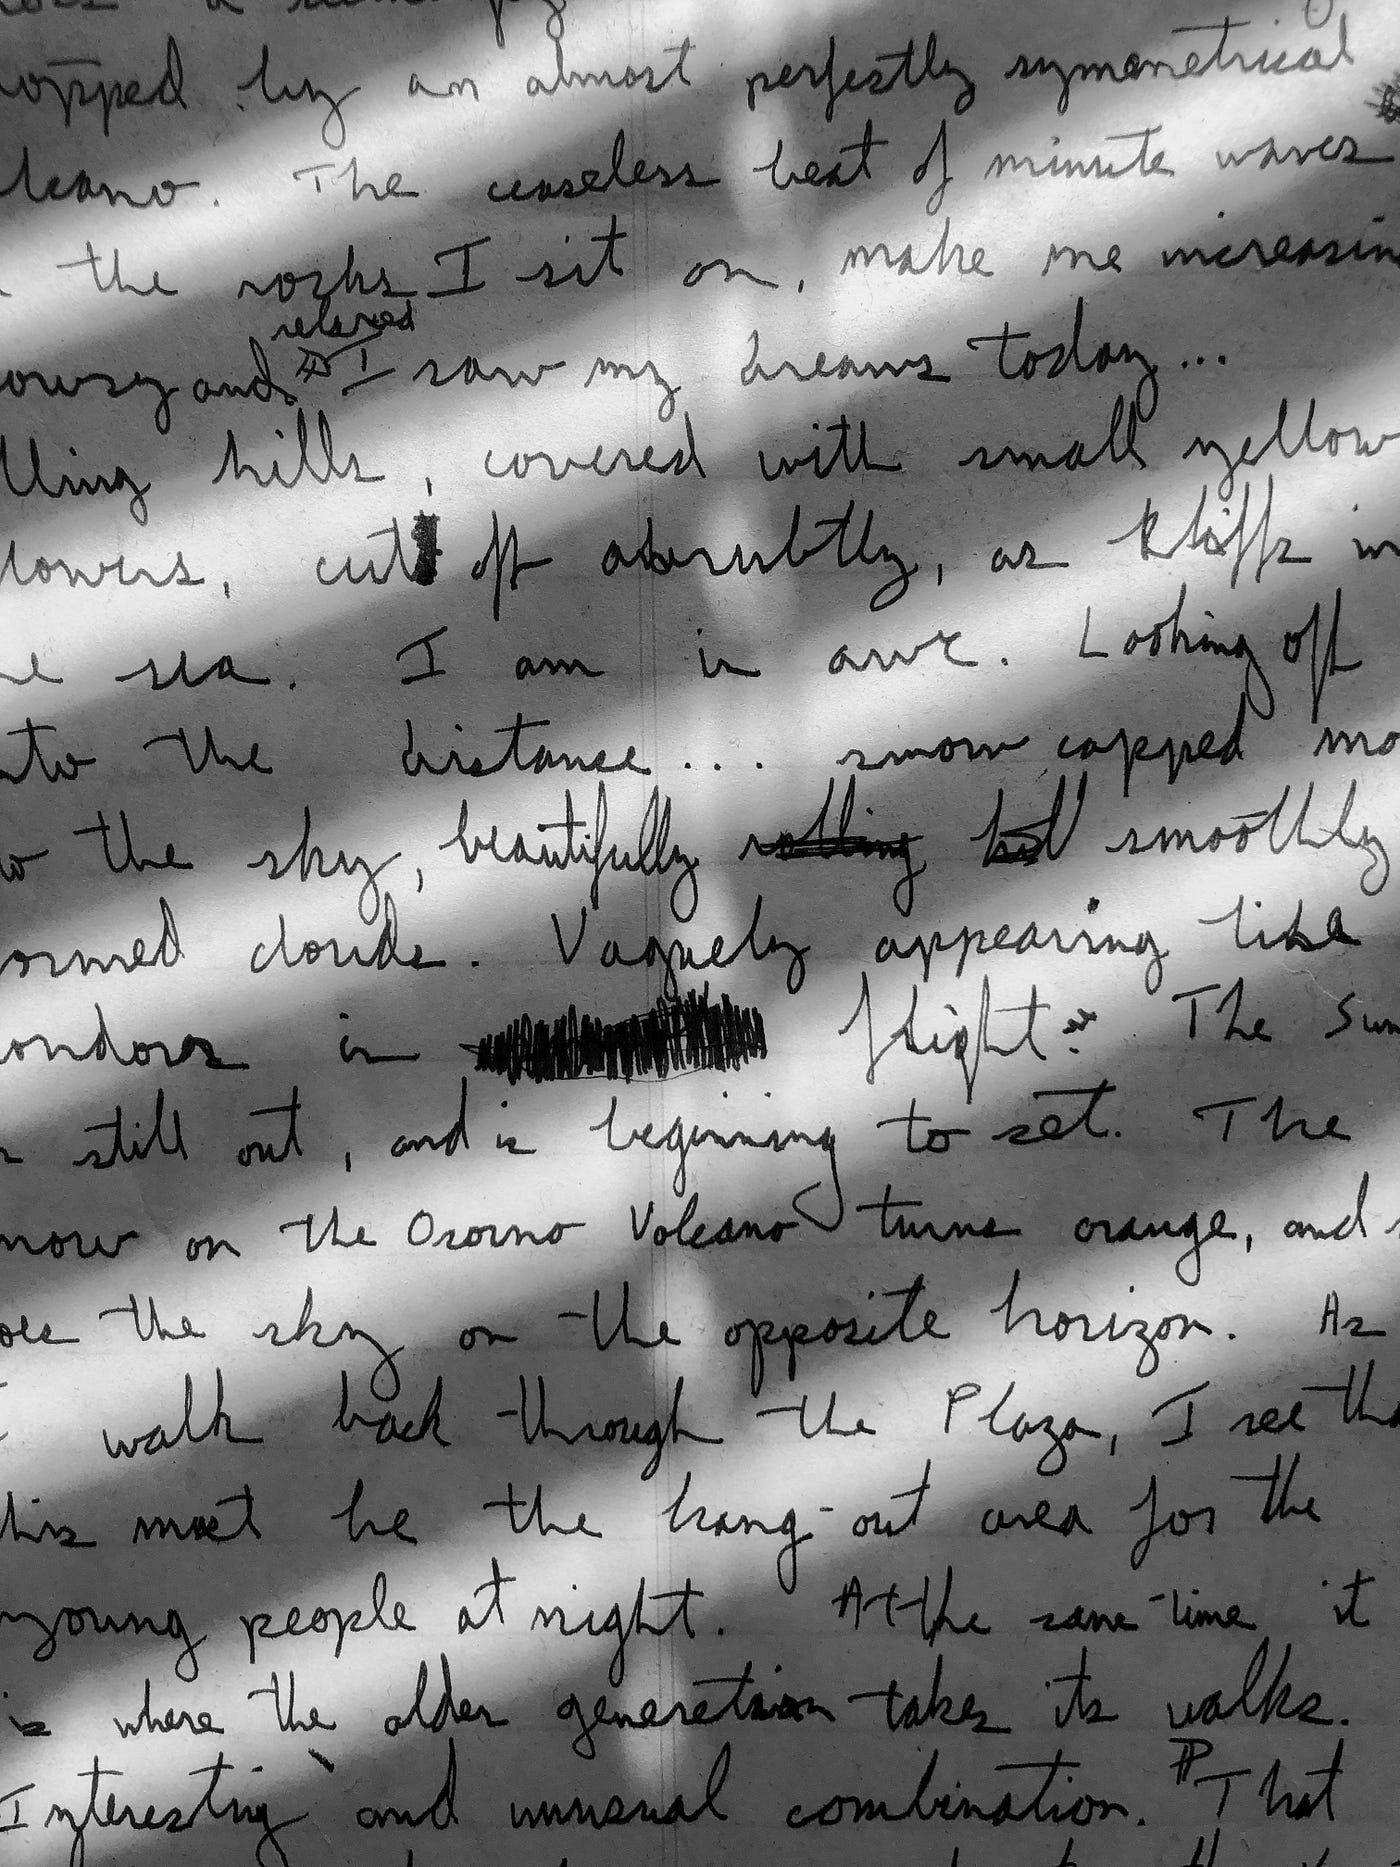 opped by an almost perfectly symmetrical
lcano. The ceaseless beat of minute waves
the rocks I sit on, make me increasin
relaxed
owsy and I saw my dreams today...
lling hills, covered with small yellow
lowers, cut off abrubtly, as kliffs in
e sea. I am in awe. Looking off
nto the distance... snow capped mo
w the sky, beautifully rolling hil smoothly
ormed clouds. Vaguely appearing like
ondors in flight. The Sun
still out, and is beginning to set. The
now on the Osorno Volcano turns orange, and
oes the sky on the opposite horizon. As
I walk back through the Plaza, I see tha
his must be the hang-out area for the
young people at night. At the same time it
is where the older generation takes its walks.
Interesting and unusual combination. That